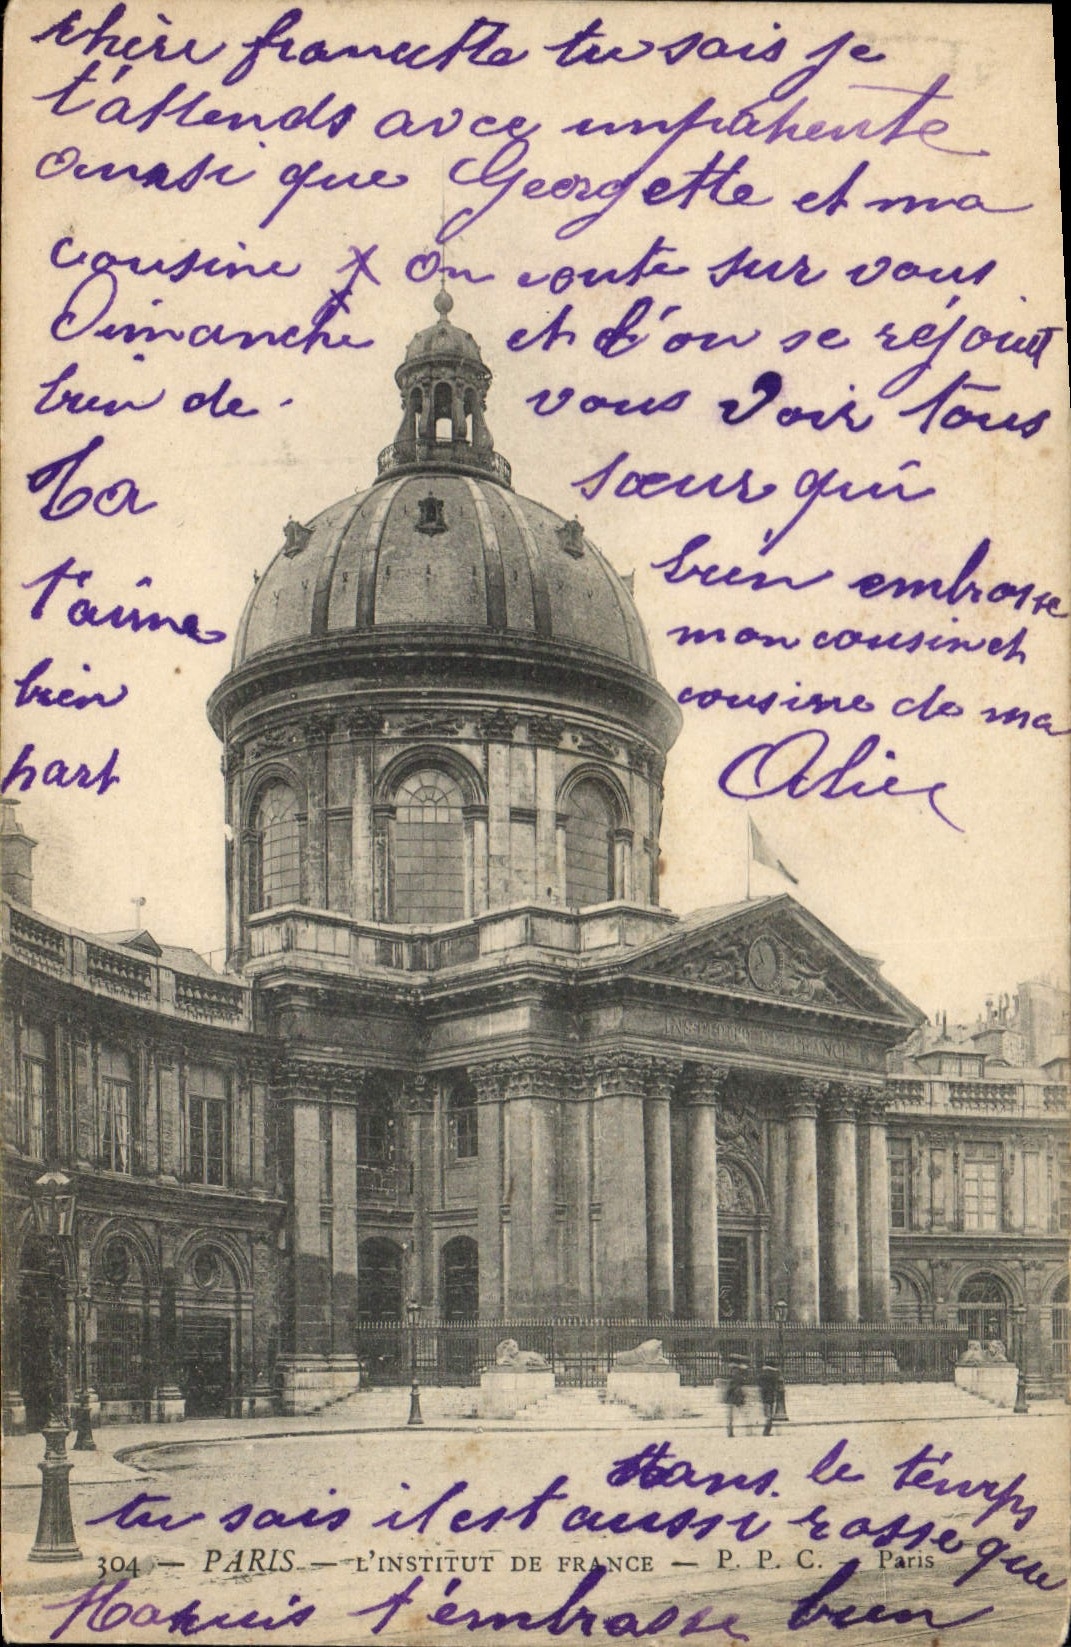 chère francette tu sais je
t'attends avec impatiente
ainsi que Georgette et ma
cousine X on conte sur vous
Dimanche et l'on se réjouit
bien de vous voir tous
Ta sœur qui
t'aime
bien
bien embrasse
mon cousin et
cousine de ma
part
Alice
le temps
tu sais il est aussi rosse que
304 — PARIS — L'INSTITUT DE FRANCE — P. P. C. — Paris
t'embrasse bien
INSTITUT DE FRANCE